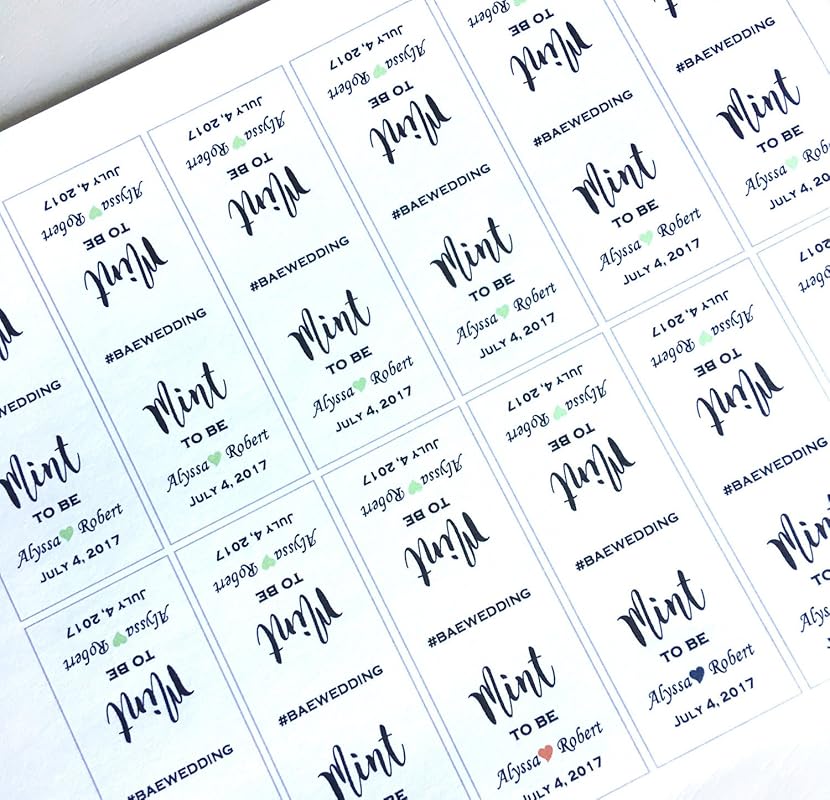 WEDDING
Mint
TO BE
Alyssa♥Robert
JULY 4, 2017
JULY 4, 2017
Alyssa♥Robert
TO BE
Mint
#BAEWEDDING
Mint
TO BE
Alyssa♥Robert
JULY 4, 2017
JULY 4, 2017
Alyssa♥Robert
TO BE
Mint
#BAEWEDDING
Mint
TO BE
Alyssa♥Robert
JULY 4, 2017
JULY 4, 2017
Alyssa♥Robert
TO BE
Mint
#BAEWEDDING
Mint
TO BE
Alyssa♥Robert
JULY 4, 2017
Alyssa♥Robert
TO BE
Mint
#BAEWEDDING
Mint
TO BE
Alyssa♥Robert
JULY 4, 2017
#BAEWEDDING
Mint
TO BE
Alyssa♥Rob
JULY 4, 20
JULY 4, 2017
Alyssa♥Robert
TO BE
Mint
#BAEWEDDING
JULY 4, 2017
Alyssa♥Robert
TO BE
Mint
#BAEWEDDING
Mint
TO BE
JULY 4, 2017
Alyssa♥Robert
TO BE
Mint
#BAEWEDDING
Mint
TO BE
Alyssa♥Robert
JULY 4, 2017
JULY 4, 2017
Alyssa♥Robert
TO BE
Mint
#BAEWEDDING
Mint
TO BE
Alyssa♥Robert
JULY 4, 2017
JULY 4, 2017
Alyssa♥Robert
TO BE
Mint
#BAEWEDDING
Mint
TO
2017